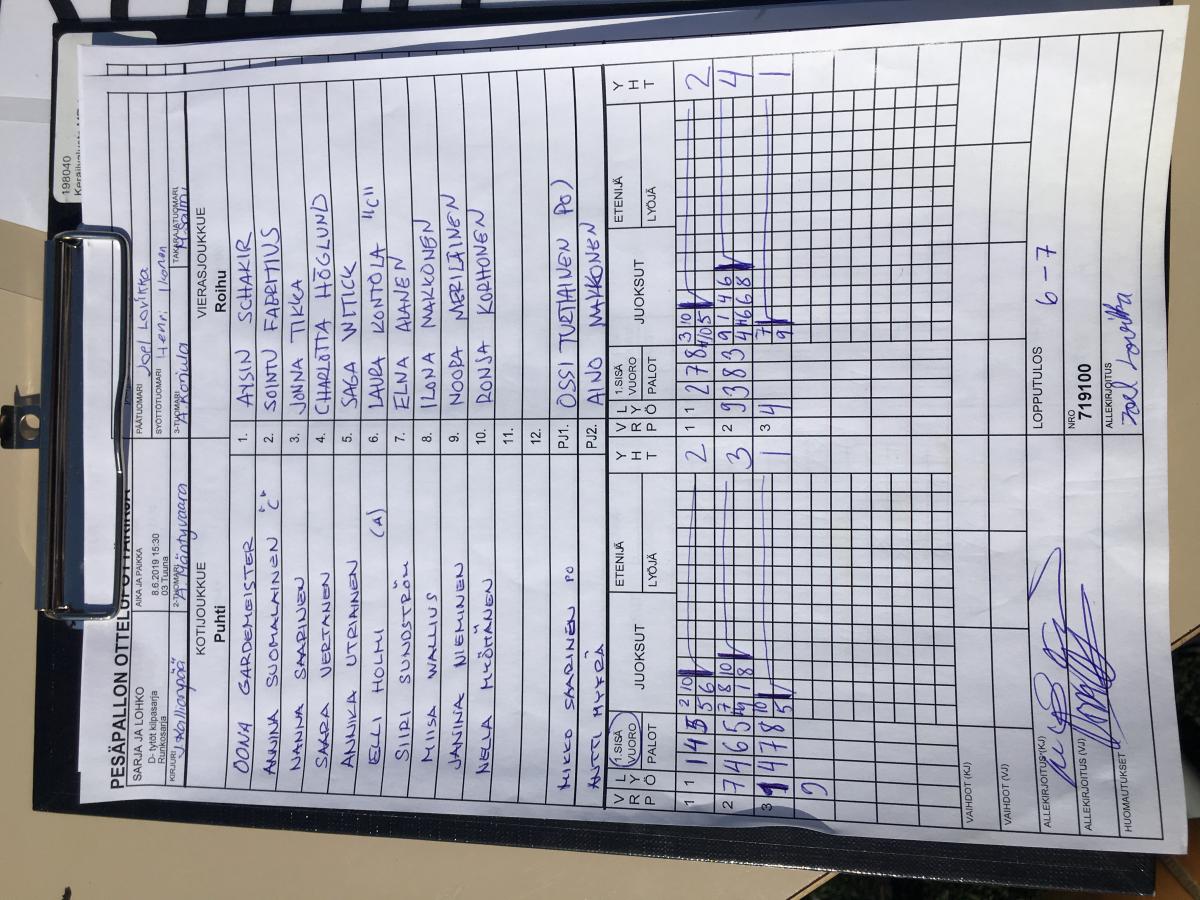 198040
PESÄPALLON OTTELUPÖYTÄKIRJA
SARJA JA LOHKO
D- tytöt kilpasarja
Runkosarja
AIKA JA PAIKKA
8.6.2019 15:30
03 Tuuna
PÄÄTUOMARI Joel Lovikka
SYÖTTÖTUOMARI Henri Ikonen
KIRJURI J.Kallionpää
2-TUOMARI A. Mäntyvaara
3-TUOMARI A. Korjula
TAKARAJATUOMARI M.Salmi
KOTIJOUKKUE
Puhti
VIERASJOUKKUE
Roihu
OONA GARDEMEISTER 1. AYSIN SCHAKIR
ANNINA SUOMALAINEN "C" 2. SOINTU FABRITIUS
NANNA SAARINEN 3. JONNA TIKKA
SAARA VERTANEN 4. CHARLOTTA HÖGLUND
ANNIKA UTRIAINEN 5. SAGA WITICK
ELLI HOLMI (A) 6. LAURA KONTOLA "C"
SIIRI SUNDSTRÖM 7. ELNA ALANEN
MIISA WALLIUS 8. ILONA MAKKONEN
JANINA NIEMINEN 9. NOORA MERILÄINEN
NELLA MYÖHÄNEN 10. RONJA KORHONEN
11.
12.
MIKKO SAARINEN PO PJ1. OSSI TURTIAINEN PO)
ANTTI MYYRÄ PJ2. AINO MAKKONEN
V R P L Y Ö 1.SISÄ VUORO PALOT JUOKSUT ETENIJÄ LYÖJÄ Y H T V R P L Y Ö 1.SISÄ VUORO PALOT JUOKSUT ETENIJÄ LYÖJÄ Y H T
VAIHDOT (KJ)
VAIHDOT (VJ)
ALLEKIRJOITUS (KJ)
LOPPUTULOS 6-7
ALLEKIRJOITUS (VJ)
NRO
719100
HUOMAUTUKSET
ALLEKIRJOITUS
Joel Lovikka